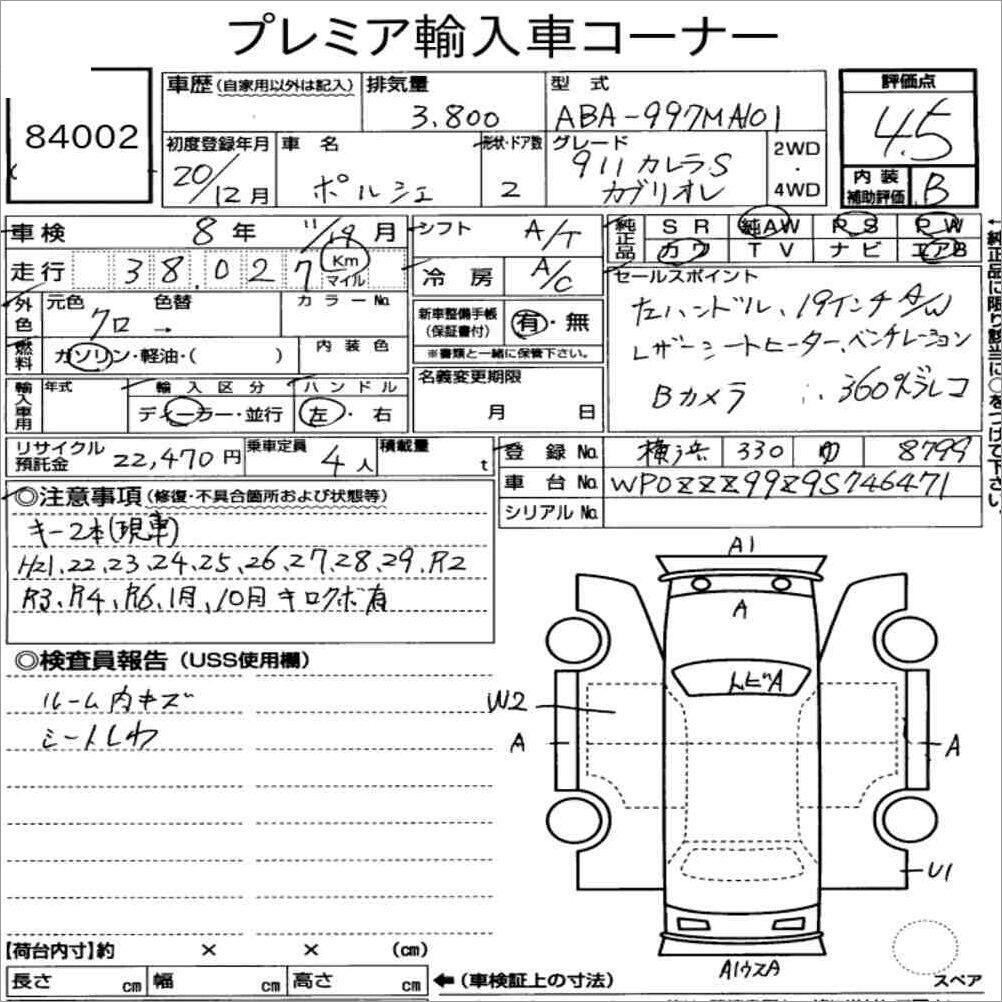 プレミア輸入車コーナー
84002
車歴(自家用以外は記入) 排気量 3.800 型式 ABA-997MA101 評価点 4.5
初度登録年月 20/12月 車名 ポルシェ 形状・ドア数 2 グレード 911カレラS カブリオレ 2WD・4WD 内装補助評価 B
車検 8年 11/19月 シフト A/T 純正品 SR 純AW PS PW
走行 38.027 Km マイル 冷房 A/C カワ TV ナビ エアB
セールスポイント
左ハンドル、19インチA/W
レザーシートヒーター、ベンチレーション
Bカメラ 360°ドレコ
外色 元色 色替 カラーNo.
クロ →
新車整備手帳(保証書付) 有・無
※書類と一緒に保管下さい。
燃料 ガソリン・軽油・( ) 内装色
名義変更期限 月 日
輸入車用 年式 輸入区分 ハンドル
ディーラー・並行 左・右
←純正品に限り該当に○をつけて下さい。
リサイクル預託金 22,470円 乗車定員 4人 積載量 t
登録No. 横浜 330 ゆ 8799
車台No. WP0ZZZ99Z9S746471
シリアルNo.
◎注意事項(修復・不具合箇所および状態等)
キー2本(現車)
H21、22、23、24、25、26、27、28、29、R2
R3、R4、R6、1月、10月キロクボ有
◎検査員報告(USS使用欄)
ルーム内キズ
シートしわ
A1
A
トビA
W2
A
A
U1
A1ウスA
スペア
【荷台内寸】約 × × (cm)
長さ cm 幅 cm 高さ cm ←(車検証上の寸法)